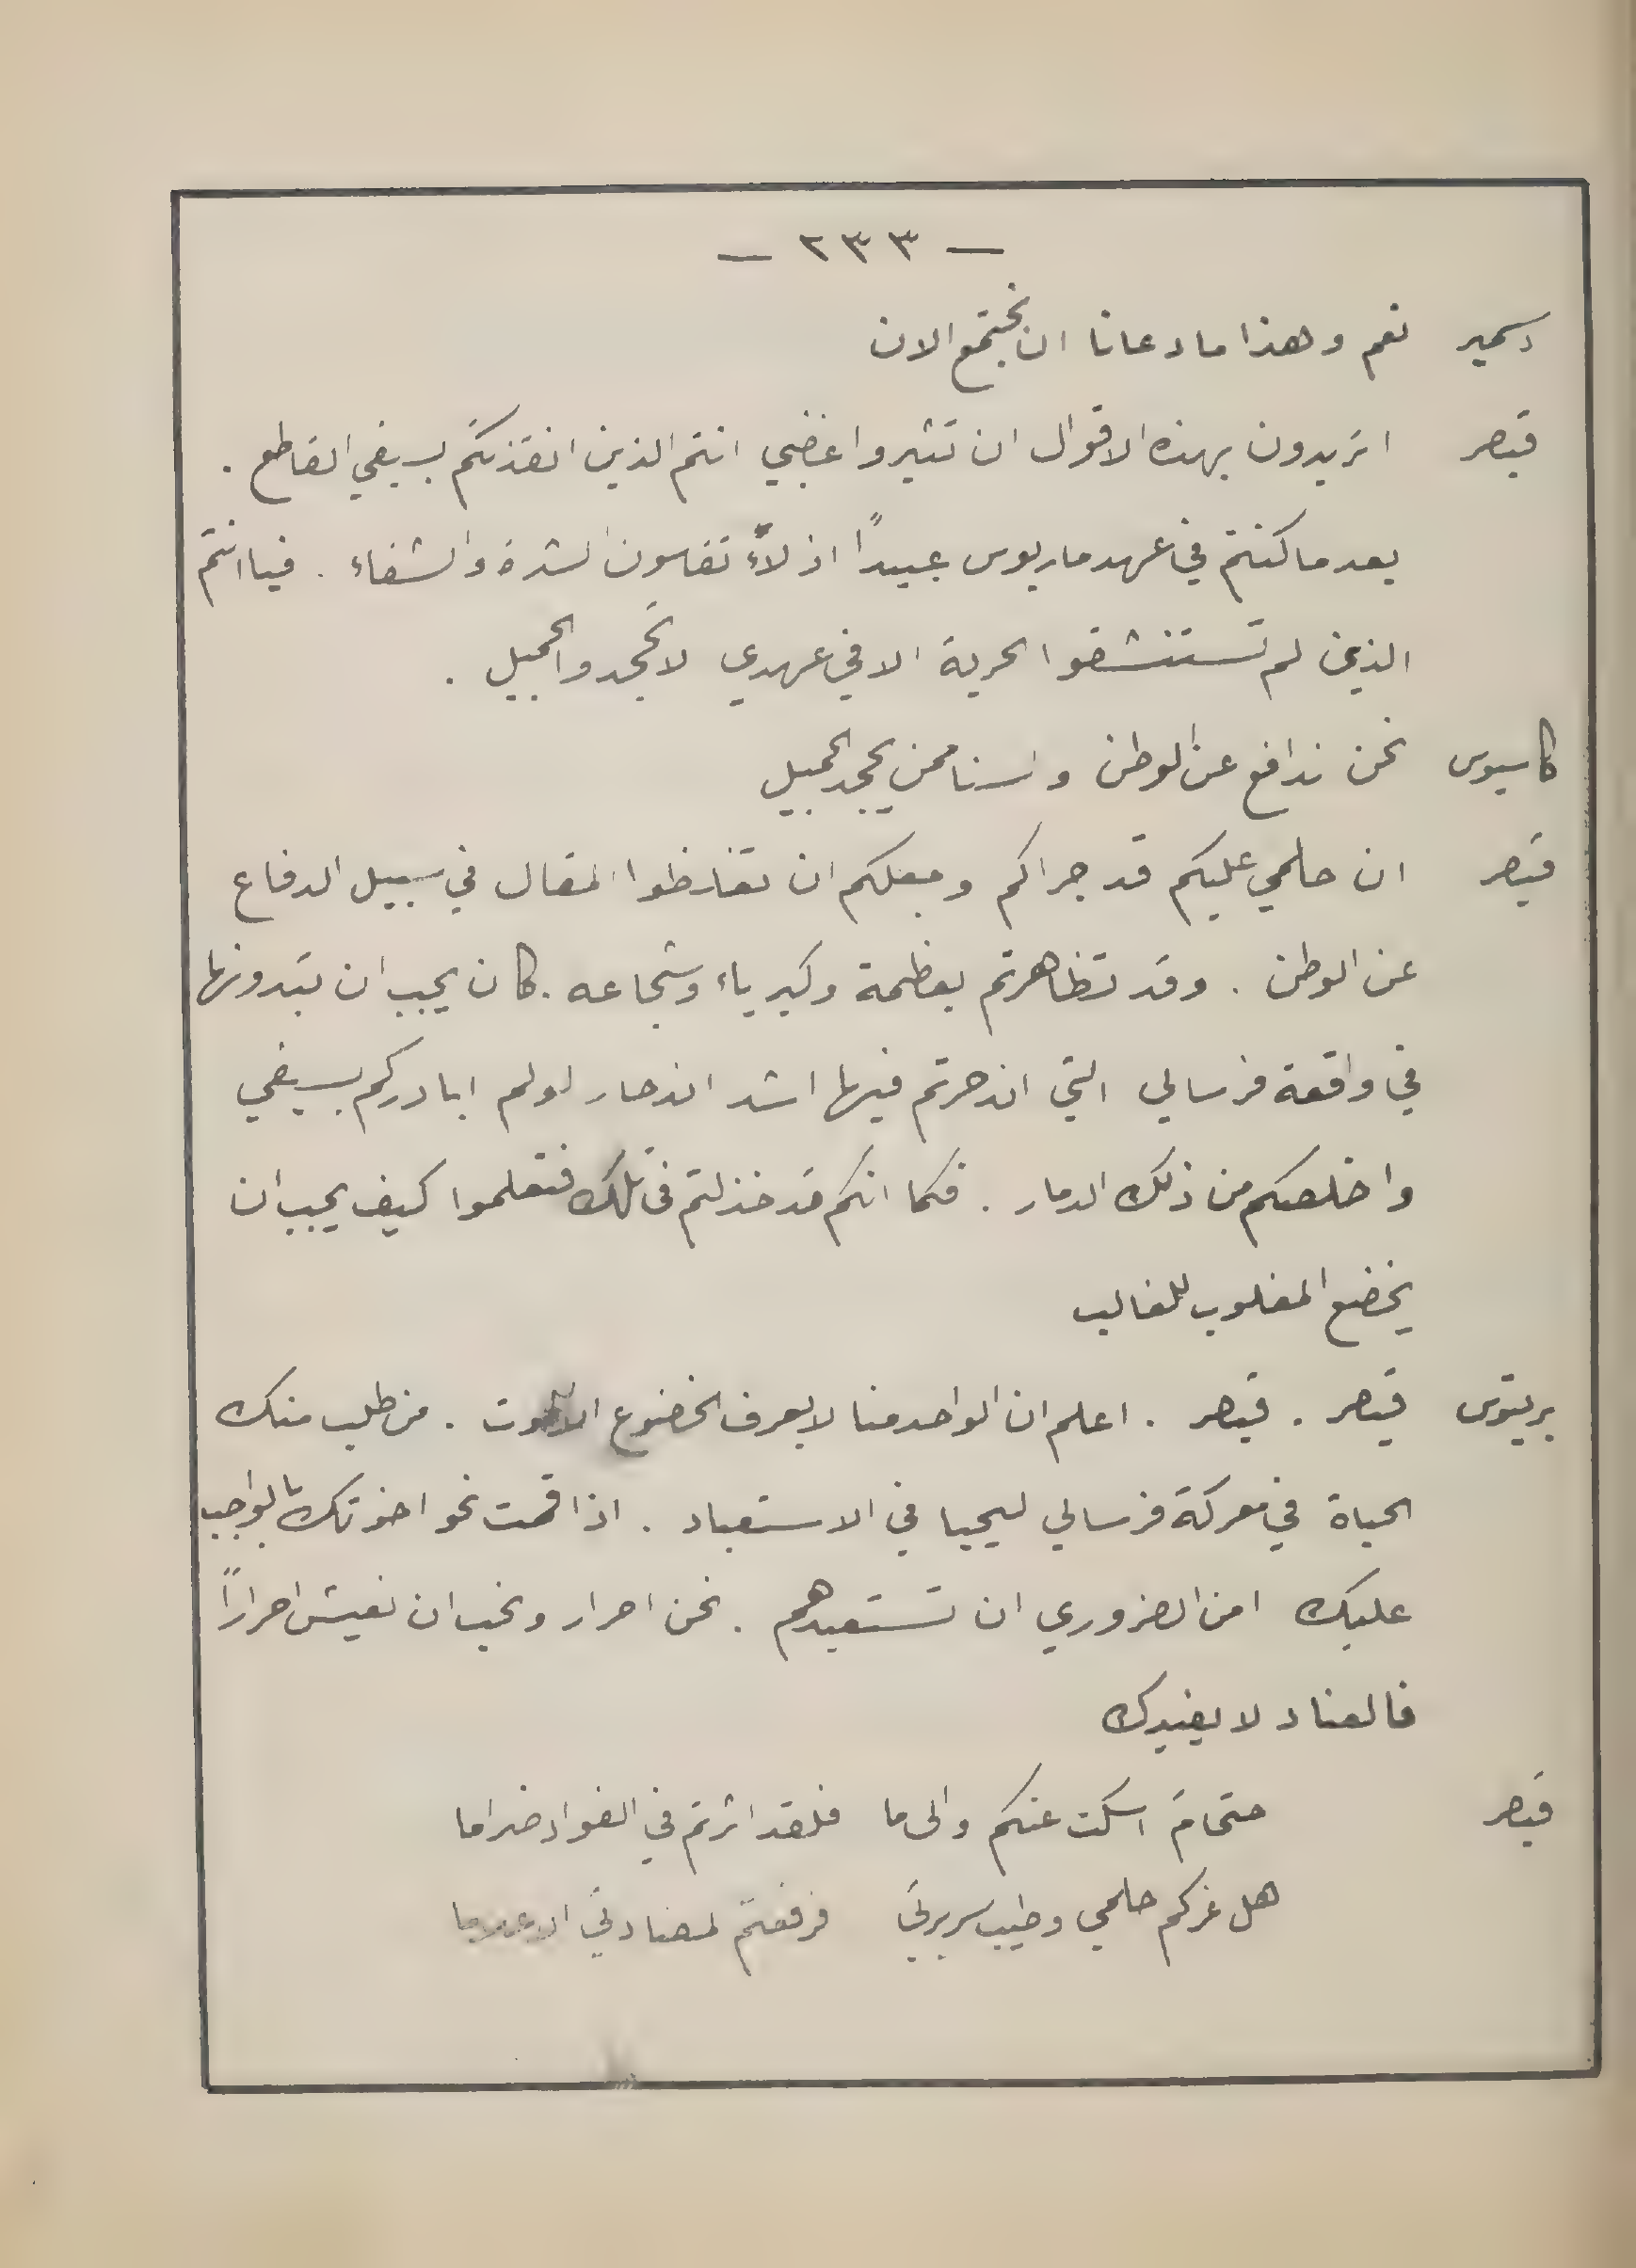 — ٢٣٣ —
دسمير نعم وهذا ما دعانا ان نجتمع الان
قيصر اتريدون بهذه الاقوال ان تثيروا غضبي انتم الذين انقذتكم بسيفي القاطع .
بعد ما كنتم في عهد ماريوس عبيداً اذلاّء تقاسون الشدة والشقاء . فيا انتم
الذين لم تستنشقوا الحرية الا في عهدي لا تجحدوا الجميل .
كاسيوس نحن ندافع عن الوطن ولسنا ممن يجحد الجميل
قيصر ان حلمي عليكم قد جراكم وجعلكم ان تغلظوا المقال في سبيل الدفاع
عن الوطن . وقد تظاهرتم بعظمة وكبرياء وشجاعه . كان يجب ان تبدونها
في واقعة فرسالي التي اندحرتم فيها اشد اندحار لولم ابادركم بسيفي
واخلصكم من ذلك الدمار . فكما انكم قد خذلتم في تلك فتعلموا كيف يجب ان
يخضع المغلوب للغالب
بريتوس قيصر . قيصر . اعلم ان الواحد منا لا يعرف الخضوع الا للموت . من طلب منك
الحياة في معركة فرسالي ليحيا في الاستعباد . اذا قمت نحو اخوتك بالواجب
عليك امن الضروري ان تستعبدهم . نحن احرار ونحب ان نعيش احراراً
فالعناد لا يفيدك
قيصر حتحامَ اسكت عنكم والى ما فلقد اثرتم في الفواد ضراما
هل غركم حلمي وطيب سريرتي فرفعتم لعنادي الاعلاما